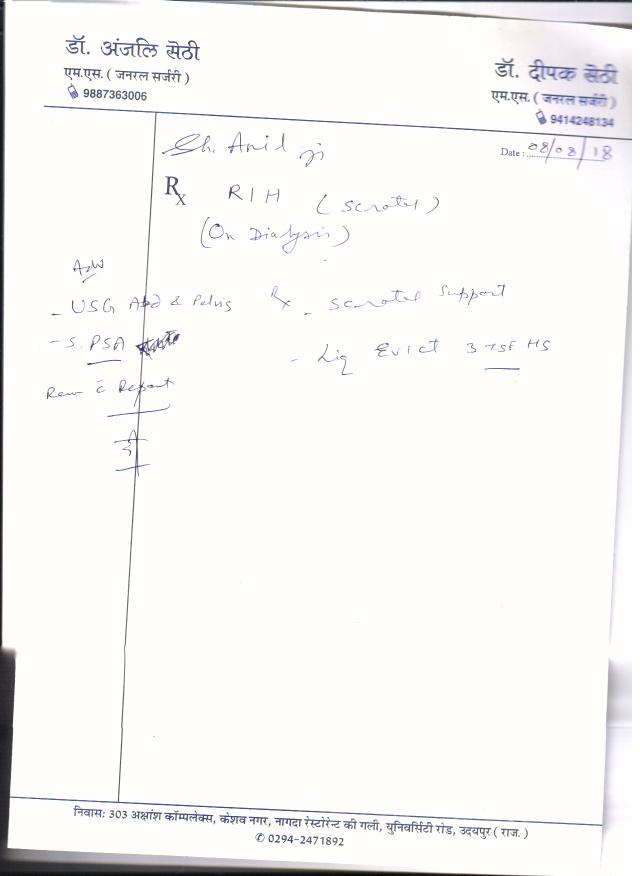 डॉ. अंजलि सेठी
एम.एस. ( जनरल सर्जरी )
9887363006
डॉ. दीपक सेठी
एम.एस. ( जनरल सर्जरी )
9414248134
Sh. Anil ji
Date : 08/08/18
Rx RIH (Scrotal)
(On Dialysis)
Adv
- USG Abd & Pelvis
- S. PSA
Rev c̄ Report
Rx - Scrotal Support
- Liq Evict 3 TSF HS
निवासः 303 अक्षांश कॉम्पलेक्स, केशव नगर, नागदा रेस्टोरेन्ट की गली, युनिवर्सिटी रोड, उदयपुर ( राज. )
✆ 0294-2471892